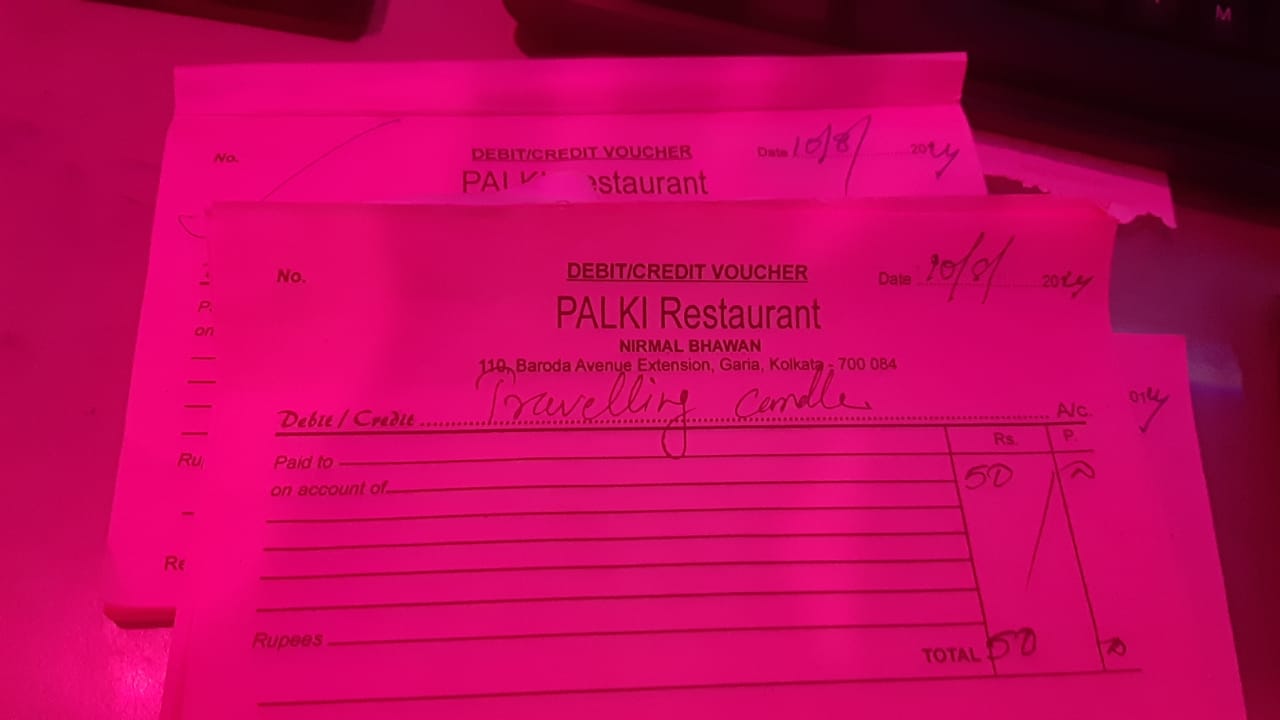 M
No.
DEBIT/CREDIT VOUCHER
Date 10/8/ 2024
PALKI Restaurant
No.
DEBIT/CREDIT VOUCHER
Date 20
PALKI Restaurant
NIRMAL BHAWAN
110, Baroda Avenue Extension, Garia, Kolkata - 700 084
Debit / Credit Travelling candle A/c.
Rs. P.
Paid to 50
on account of
Rupees
TOTAL 50